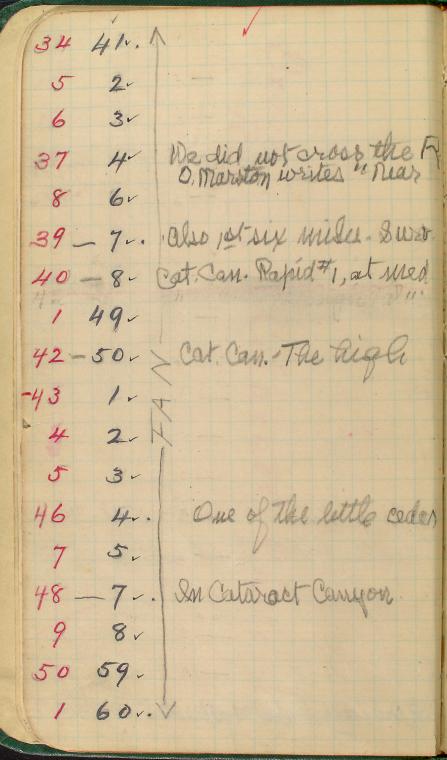 34 41✓.
5 2✓
6 3✓
37 4✓ We did not cross the R
O. Marston writes "Near
8 6✓
39 — 7✓. Also 1st six miles.
40 — 8✓ Cat. Can. Rapid #1, at med
1 49✓
42 — 50✓ Cat. Can. - The high
-43 1✓
FAN
4 2✓
5 3✓
46 4✓. One of the little cedar
7 5✓
48 — 7✓. In Cataract Canyon.
9 8✓
50 59✓
1 60✓.